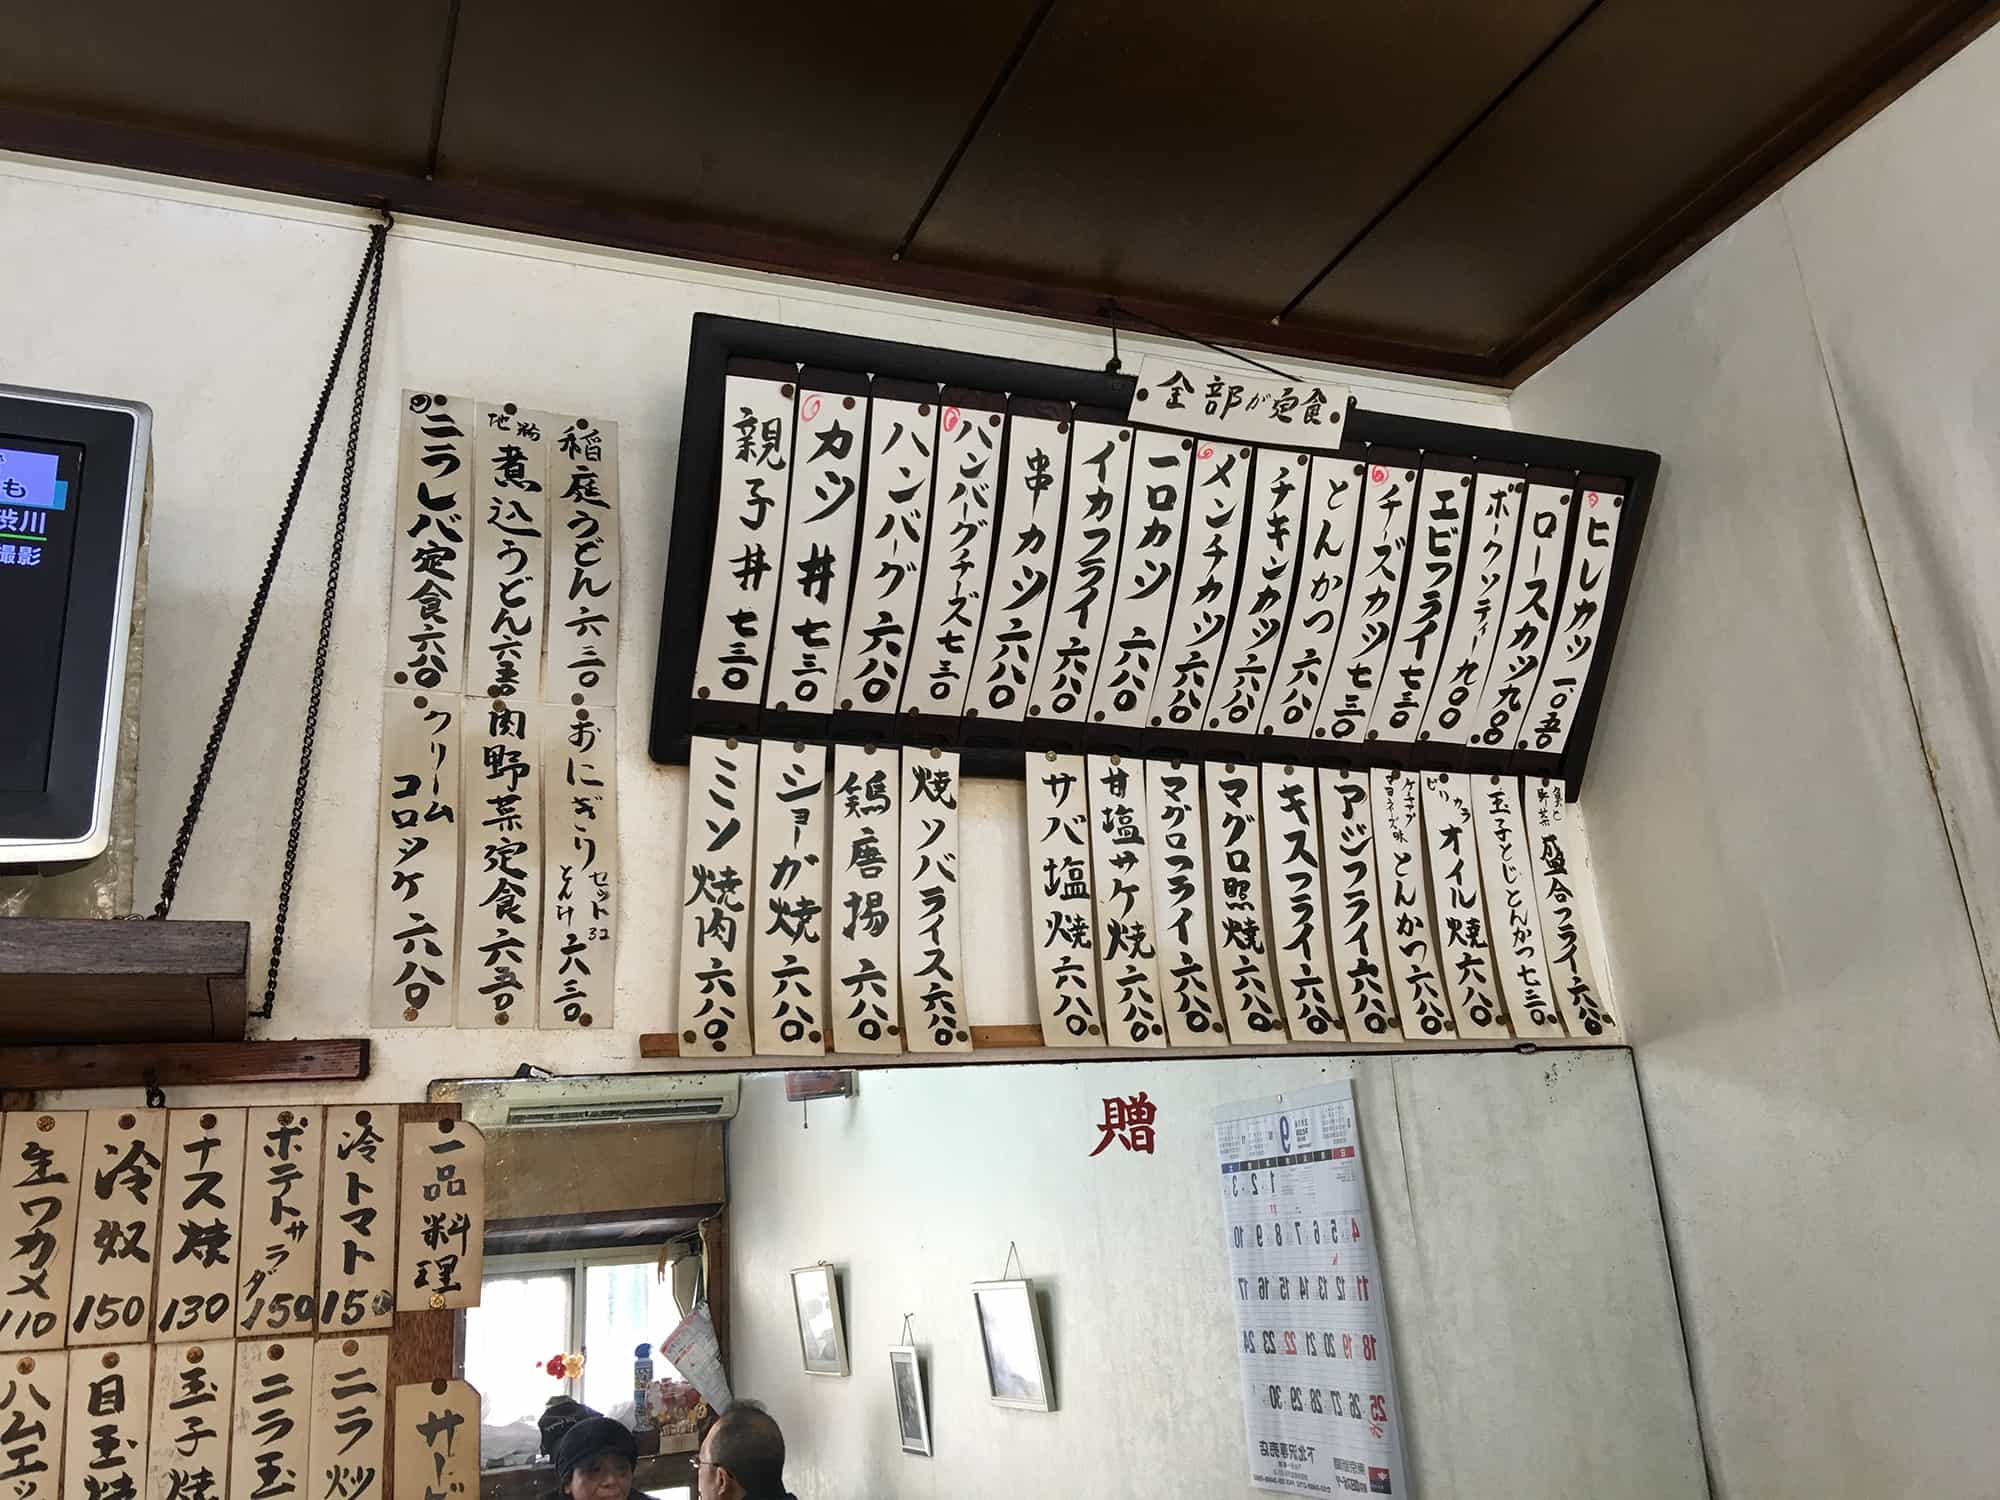 全部が定食
ヒレカツ 一、〇五〇
ロースカツ 九〇〇
ポークソティー 九〇〇
エビフライ 七三〇
チーズカツ 七三〇
とんかつ 六八〇
チキンカツ 六八〇
メンチカツ 六八〇
一口カツ 六八〇
イカフライ 六八〇
串カツ 六八〇
ハンバーグチーズ 七三〇
ハンバーグ 六八〇
カツ丼 七三〇
親子丼 七三〇
魚と野菜 盛合フライ 六八〇
玉子とじとんかつ 七三〇
ピリカラ オイル焼 六八〇
ケチャップマヨネーズ味 とんかつ 六八〇
アジフライ 六八〇
キスフライ 六八〇
マグロ照焼 六八〇
マグロフライ 六八〇
甘塩サケ焼 六八〇
サバ塩焼 六八〇
焼ソバライス 六八〇
鶏唐揚 六八〇
ショーガ焼 六八〇
ミソ焼肉 六八〇
稲庭うどん 六三〇
煮込うどん 六五〇
ニラレバ定食 六八〇
おにぎり セット とん汁 六三〇
肉野菜定食 六五〇
クリームコロッケ 六八〇
も
渋川
撮影
一品料理
冷トマト 150
ポテトサラダ 150
ナス焼 130
冷奴 150
生ワカメ 110
ニラ炒
ニラ玉
玉子焼
目玉焼
ハムエッ
贈
9